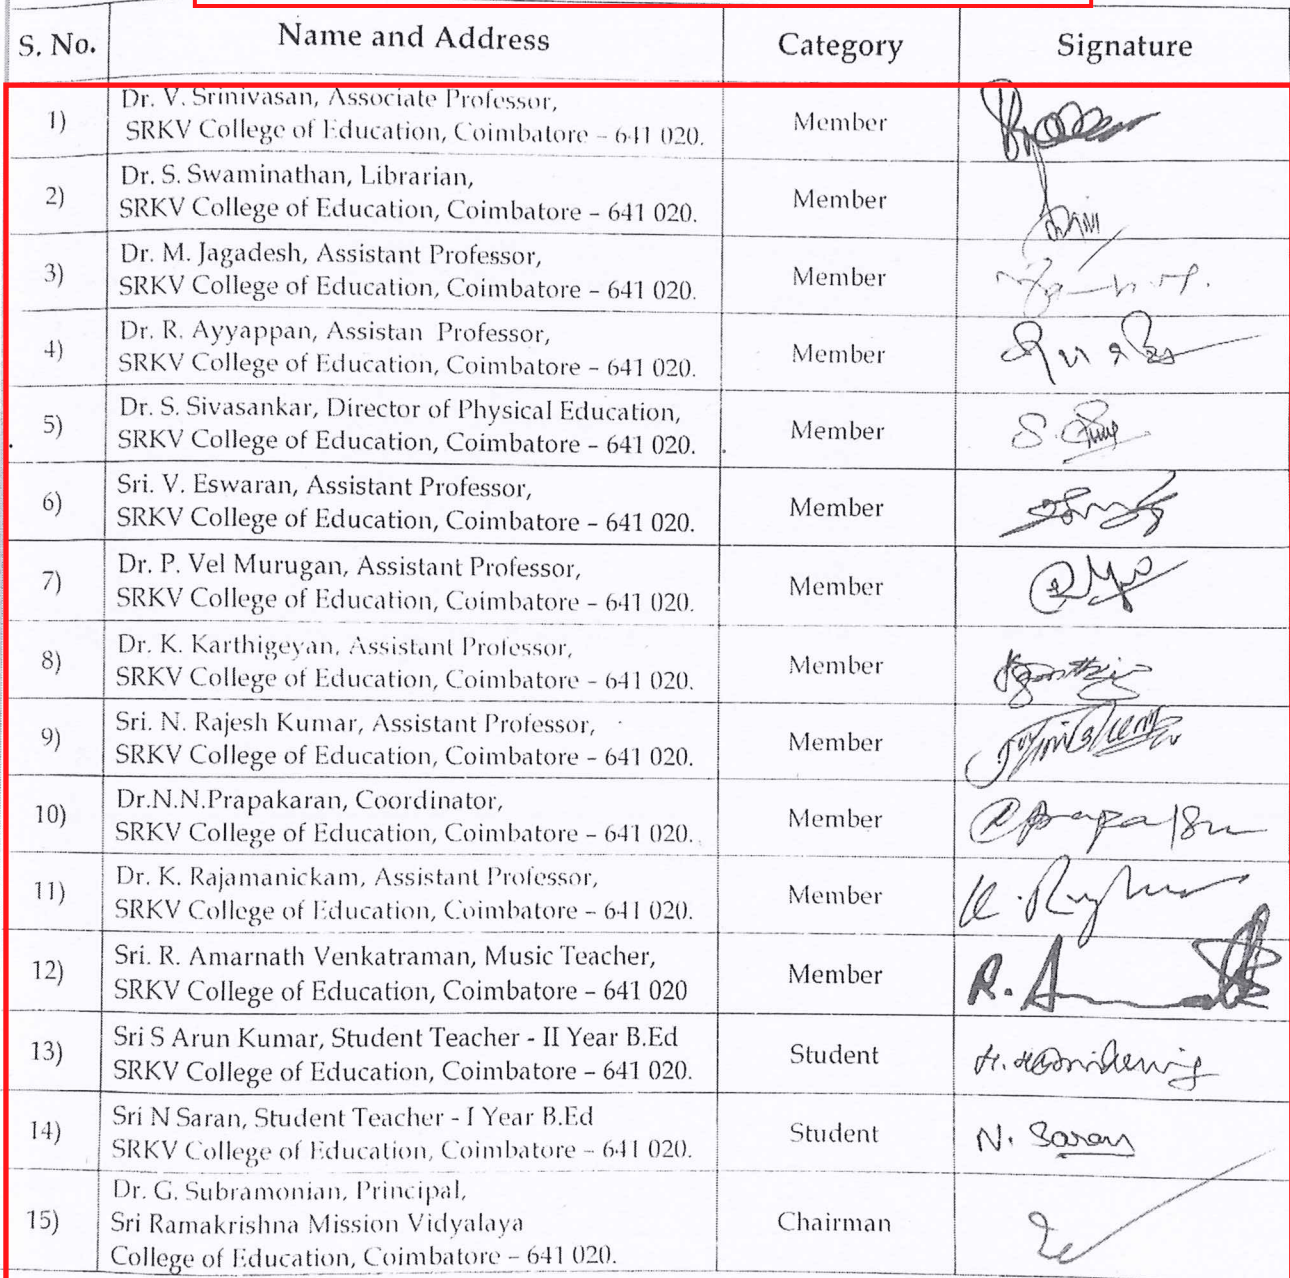 S. No. Name and Address Category Signature
1) Dr. V. Srinivasan, Associate Professor, Member
SRKV College of Education, Coimbatore – 641 020.
2) Dr. S. Swaminathan, Librarian, Member
SRKV College of Education, Coimbatore – 641 020.
3) Dr. M. Jagadesh, Assistant Professor, Member
SRKV College of Education, Coimbatore – 641 020.
4) Dr. R. Ayyappan, Assistan Professor, Member
SRKV College of Education, Coimbatore – 641 020.
5) Dr. S. Sivasankar, Director of Physical Education, Member
SRKV College of Education, Coimbatore – 641 020.
6) Sri. V. Eswaran, Assistant Professor, Member
SRKV College of Education, Coimbatore – 641 020.
7) Dr. P. Vel Murugan, Assistant Professor, Member
SRKV College of Education, Coimbatore – 641 020.
8) Dr. K. Karthigeyan, Assistant Professor, Member
SRKV College of Education, Coimbatore – 641 020.
9) Sri. N. Rajesh Kumar, Assistant Professor, Member
SRKV College of Education, Coimbatore – 641 020.
10) Dr.N.N.Prapakaran, Coordinator, Member
SRKV College of Education, Coimbatore – 641 020.
11) Dr. K. Rajamanickam, Assistant Professor, Member
SRKV College of Education, Coimbatore – 641 020.
12) Sri. R. Amarnath Venkatraman, Music Teacher, Member
SRKV College of Education, Coimbatore – 641 020
13) Sri S Arun Kumar, Student Teacher - II Year B.Ed Student
SRKV College of Education, Coimbatore – 641 020.
14) Sri N Saran, Student Teacher - I Year B.Ed Student N. Saran
SRKV College of Education, Coimbatore – 641 020.
Dr. G. Subramonian, Principal,
15) Sri Ramakrishna Mission Vidyalaya Chairman
College of Education, Coimbatore – 641 020.